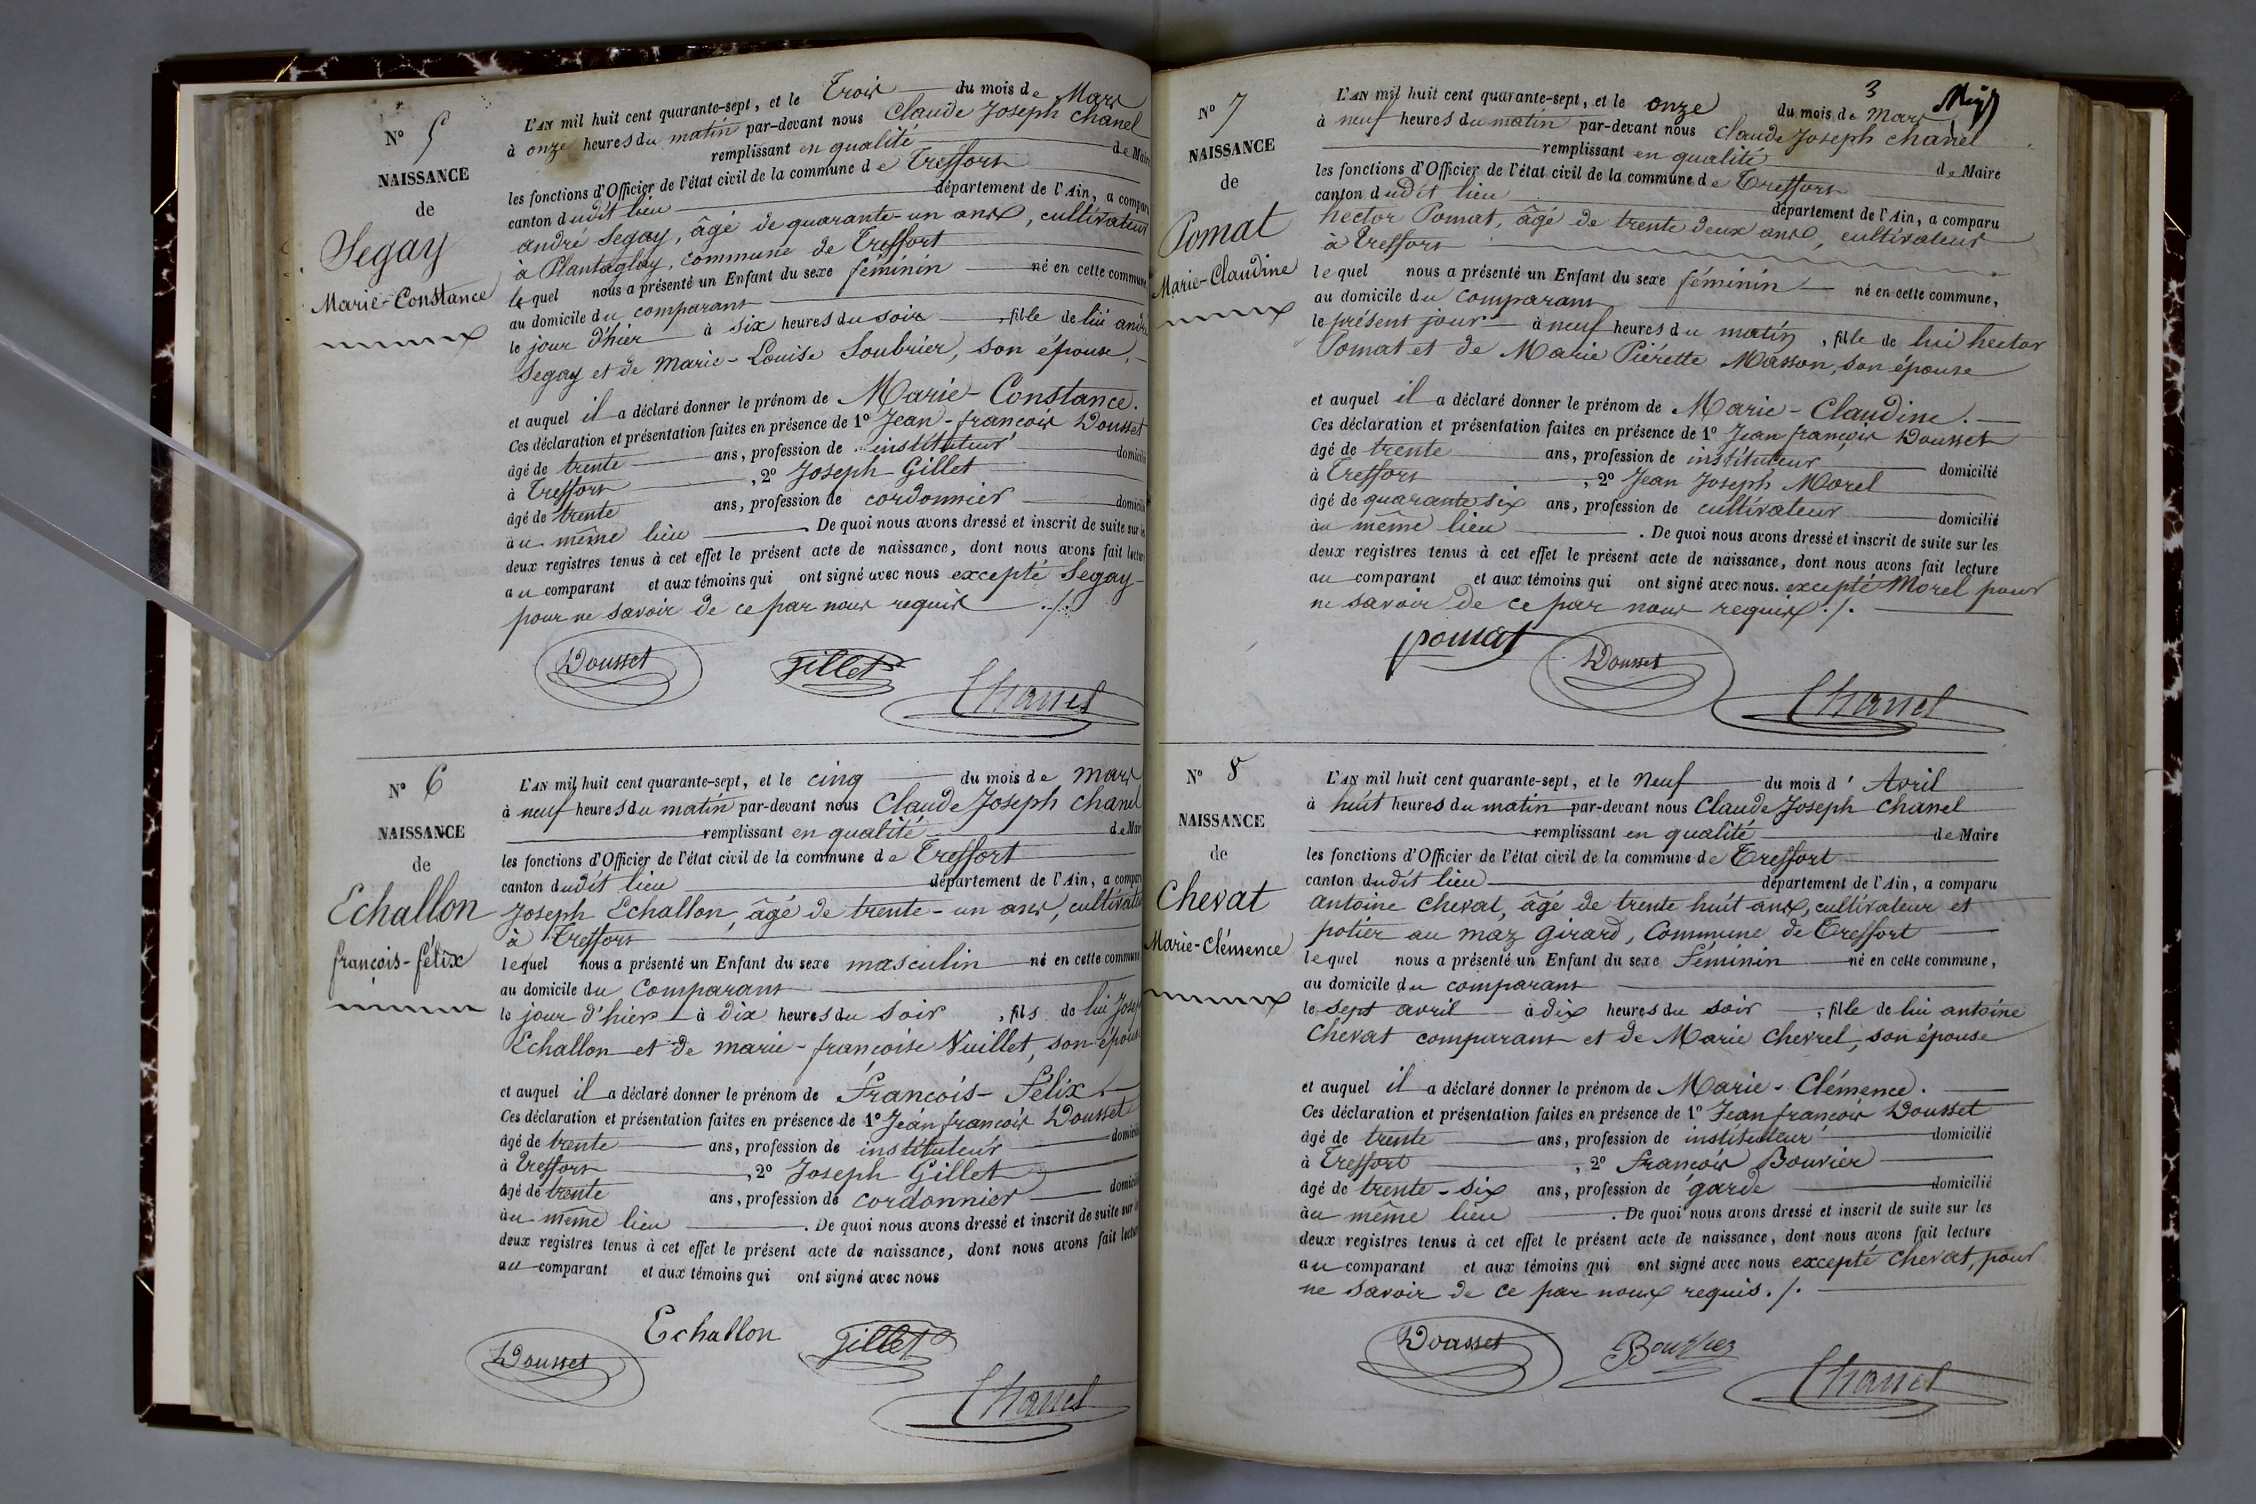 N° 5
NAISSANCE
de
Segay
Marie-Constance
L'AN mil huit cent quarante-sept, et le Trois du mois de Mars
à onze heures du matin par-devant nous Claude Joseph Chanel
remplissant en qualité de Maire
les fonctions d'Officier de l'état civil de la commune de Treffort
canton dudit lieu département de l'Ain, a compar
andré Segay, âgé de quarante-un ans, cultivateur
à Plantaglay, commune de Treffort
lequel nous a présenté un Enfant du sexe féminin né en cette commune
au domicile du comparant
le jour d'hier à six heures du soir, fille de lui andré
Segay et de Marie-Louise Soubrier, son épouse,
et auquel il a déclaré donner le prénom de Marie-Constance.
Ces déclaration et présentation faites en présence de 1° Jean-françois Dousset
âgé de trente ans, profession de instituteur domicilié
à Treffort, 2° Joseph Gillet
âgé de trente ans, profession de cordonnier domicilié
au même lieu. De quoi nous avons dressé et inscrit de suite sur les
deux registres tenus à cet effet le présent acte de naissance, dont nous avons fait lecture
au comparant et aux témoins qui ont signé avec nous excepté Segay
pour ne savoir de ce par nous requis ./.
Dousset Gillet Chanel
N° 6
NAISSANCE
de
Echallon
françois-félix
L'AN mil huit cent quarante-sept, et le cinq du mois de mars
à neuf heures du matin par-devant nous Claude Joseph Chanel
remplissant en qualité de Mair
les fonctions d'Officier de l'état civil de la commune de Treffort
canton dudit lieu département de l'Ain, a compar
Joseph Echallon, âgé de trente-un ans, cultivate
à Treffort
lequel nous a présenté un Enfant du sexe masculin né en cette commune
au domicile du Comparant
le jour d'hier à dix heures du soir, fils de lui Josep
Echallon et de marie-françoise Vuillet, son épouse
et auquel il a déclaré donner le prénom de François-Félix
Ces déclaration et présentation faites en présence de 1° Jean françois Dousset
âgé de trente ans, profession de instituteur domicilié
à Treffort, 2° Joseph Gillet
âgé de trente ans, profession de cordonnier domicilié
au même lieu. De quoi nous avons dressé et inscrit de suite sur le
deux registres tenus à cet effet le présent acte de naissance, dont nous avons fait lectur
au comparant et aux témoins qui ont signé avec nous
Echallon Gillet
Dousset Chanel
3
N° 7
NAISSANCE
de
Pomat
Marie-Claudine
L'AN mil huit cent quarante-sept, et le onze du mois de Mars
à neuf heures du matin par-devant nous Claude Joseph Chanel
remplissant en qualité de Maire
les fonctions d'Officier de l'état civil de la commune de Treffort
canton dudit lieu département de l'Ain, a comparu
hector Pomat, âgé de trente deux ans, cultivateur
à Treffort
lequel nous a présenté un Enfant du sexe féminin né en cette commune,
au domicile du comparant
le présent jour à neuf heures du matin, fille de lui hector
Pomat et de Marie Piérette Masson, son épouse
et auquel il a déclaré donner le prénom de Marie-Claudine.
Ces déclaration et présentation faites en présence de 1° Jean françois Dousset
âgé de trente ans, profession de instituteur domicilié
à Treffort, 2° Jean Joseph Morel
âgé de quarante six ans, profession de cultivateur domicilié
au même lieu. De quoi nous avons dressé et inscrit de suite sur les
deux registres tenus à cet effet le présent acte de naissance, dont nous avons fait lecture
au comparant et aux témoins qui ont signé avec nous. excepté Morel pour
ne savoir de ce par nous requis ./.
pomat Dousset Chanel
N° 8
NAISSANCE
de
Chevat
Marie-Clémence
L'AN mil huit cent quarante-sept, et le Neuf du mois d' Avril
à huit heures du matin par-devant nous Claude Joseph Chanel
remplissant en qualité de Maire
les fonctions d'Officier de l'état civil de la commune de Treffort
canton dudit lieu département de l'Ain, a comparu
antoine Chevat, âgé de trente huit ans, cultivateur et
potier au maz girard, Commune de Treffort
lequel nous a présenté un Enfant du sexe Féminin né en cette commune,
au domicile du comparant
le sept avril à dix heures du soir, fille de lui antoine
Chevat comparant et de Marie Chevrel, son épouse
et auquel il a déclaré donner le prénom de Marie-Clémence.
Ces déclaration et présentation faites en présence de 1° Jean françois Dousset
âgé de trente ans, profession de instituteur domicilié
à Treffort, 2° françois Bouvier
âgé de trente-six ans, profession de garde domicilié
au même lieu. De quoi nous avons dressé et inscrit de suite sur les
deux registres tenus à cet effet le présent acte de naissance, dont nous avons fait lecture
au comparant et aux témoins qui ont signé avec nous excepté Chevat, pour
ne savoir de ce par nous requis. /.
Dousset Bouvier Chanel